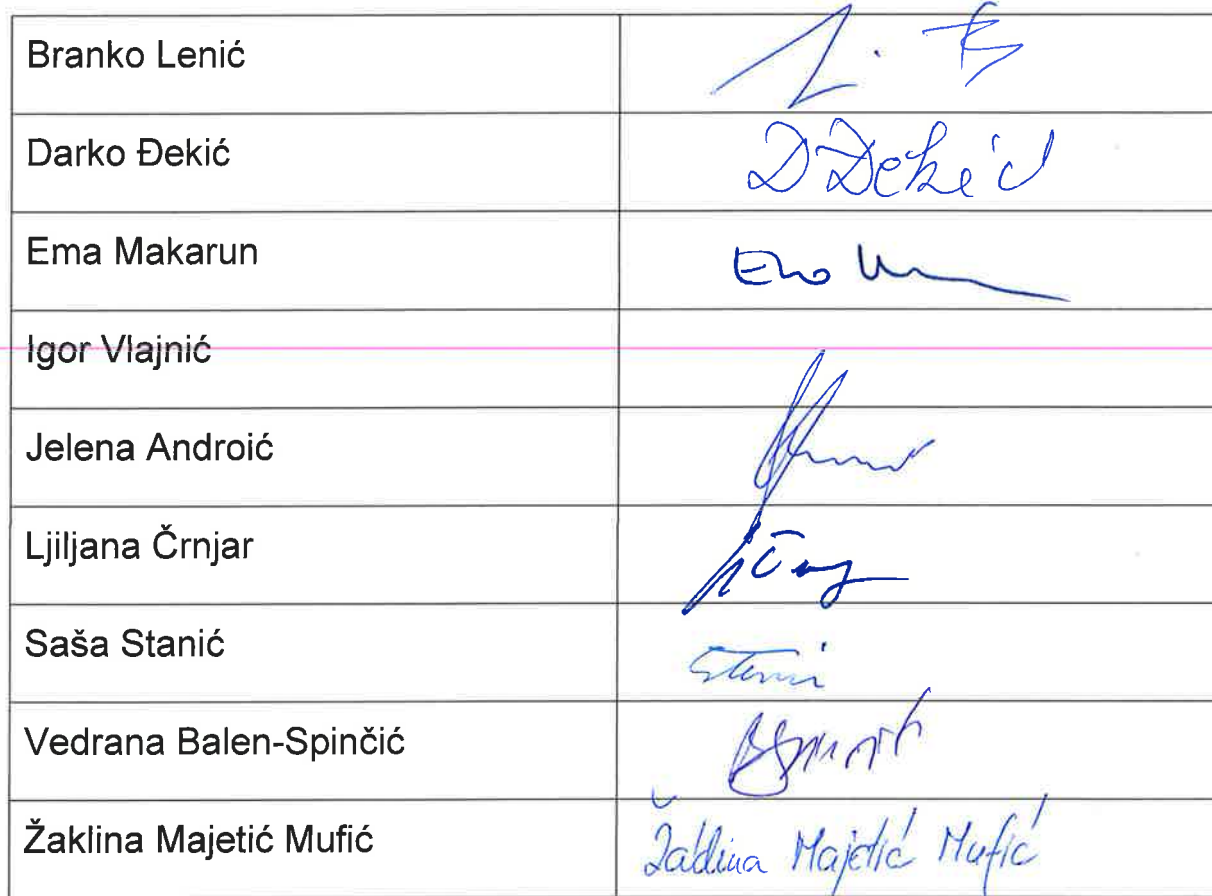 Branko Lenić
Darko Đekić DĐekić
Ema Makarun Ema
Igor Vlajnić
Jelena Androić
Ljiljana Črnjar
Saša Stanić Stanić
Vedrana Balen-Spinčić
Žaklina Majetić Mufić Žaklina Majetić Mufić